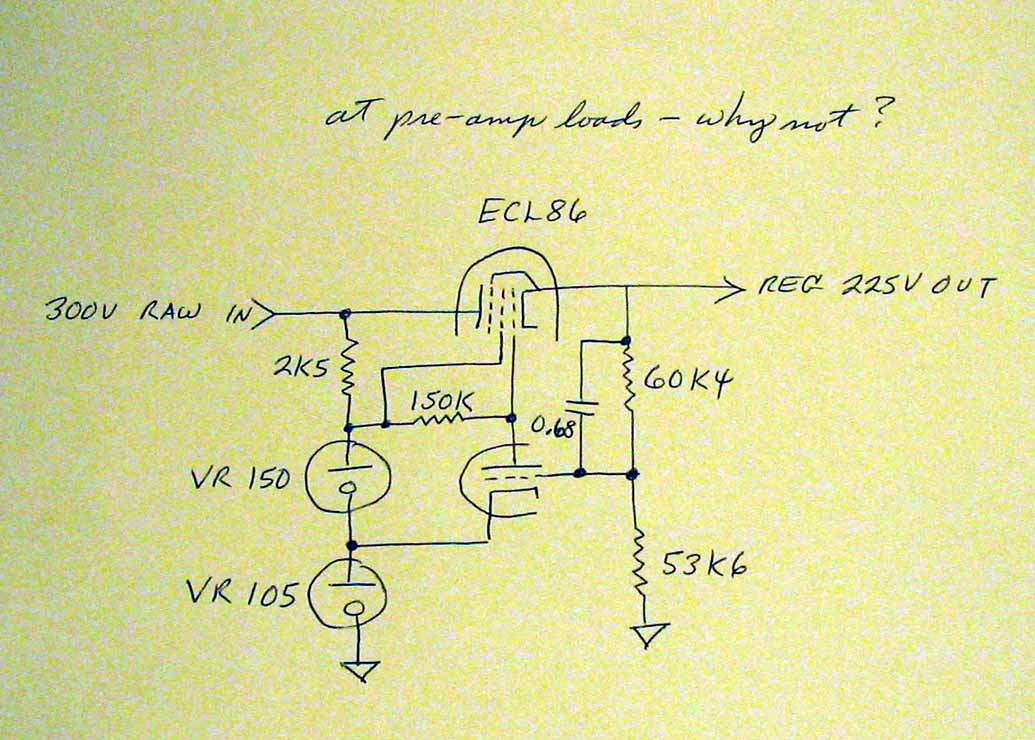 at pre-amp loads – why not?
ECL86
300V RAW IN
REG 225V OUT
2K5
150K
60K4
0.68
VR 150
VR 105
53K6